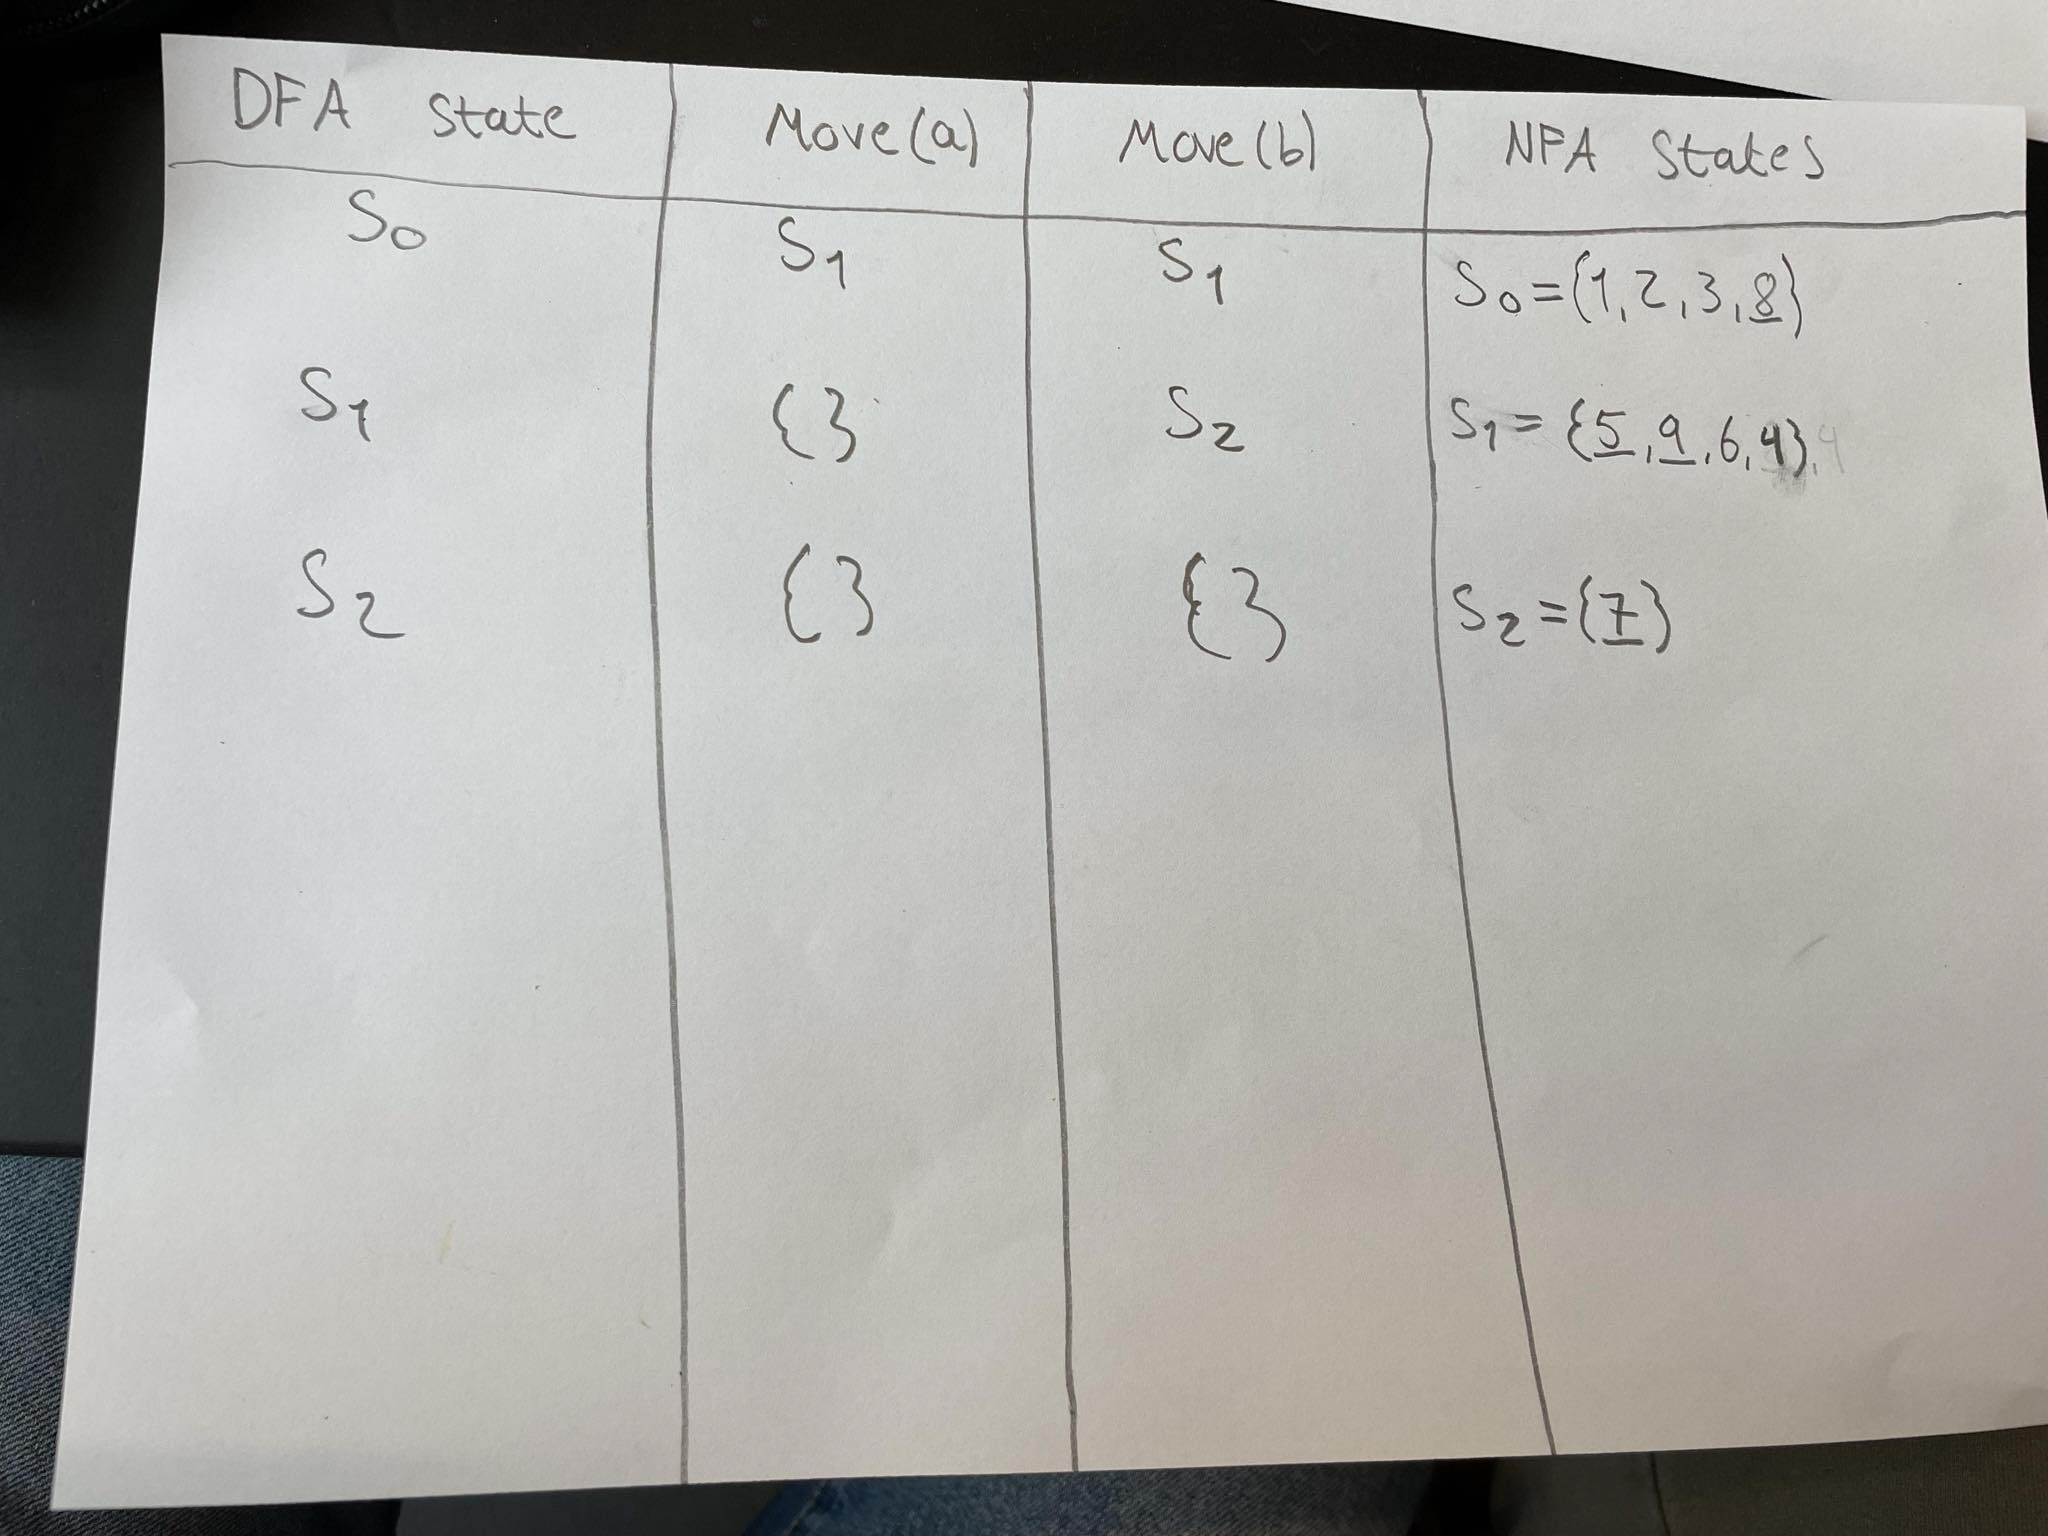 DFA state Move(a) Move(b) NFA states
S0 S1 S1 S0={1,2,3,8}
S1 {} S2 S1={5,9,6,4},4
S2 {} {} S2={7}